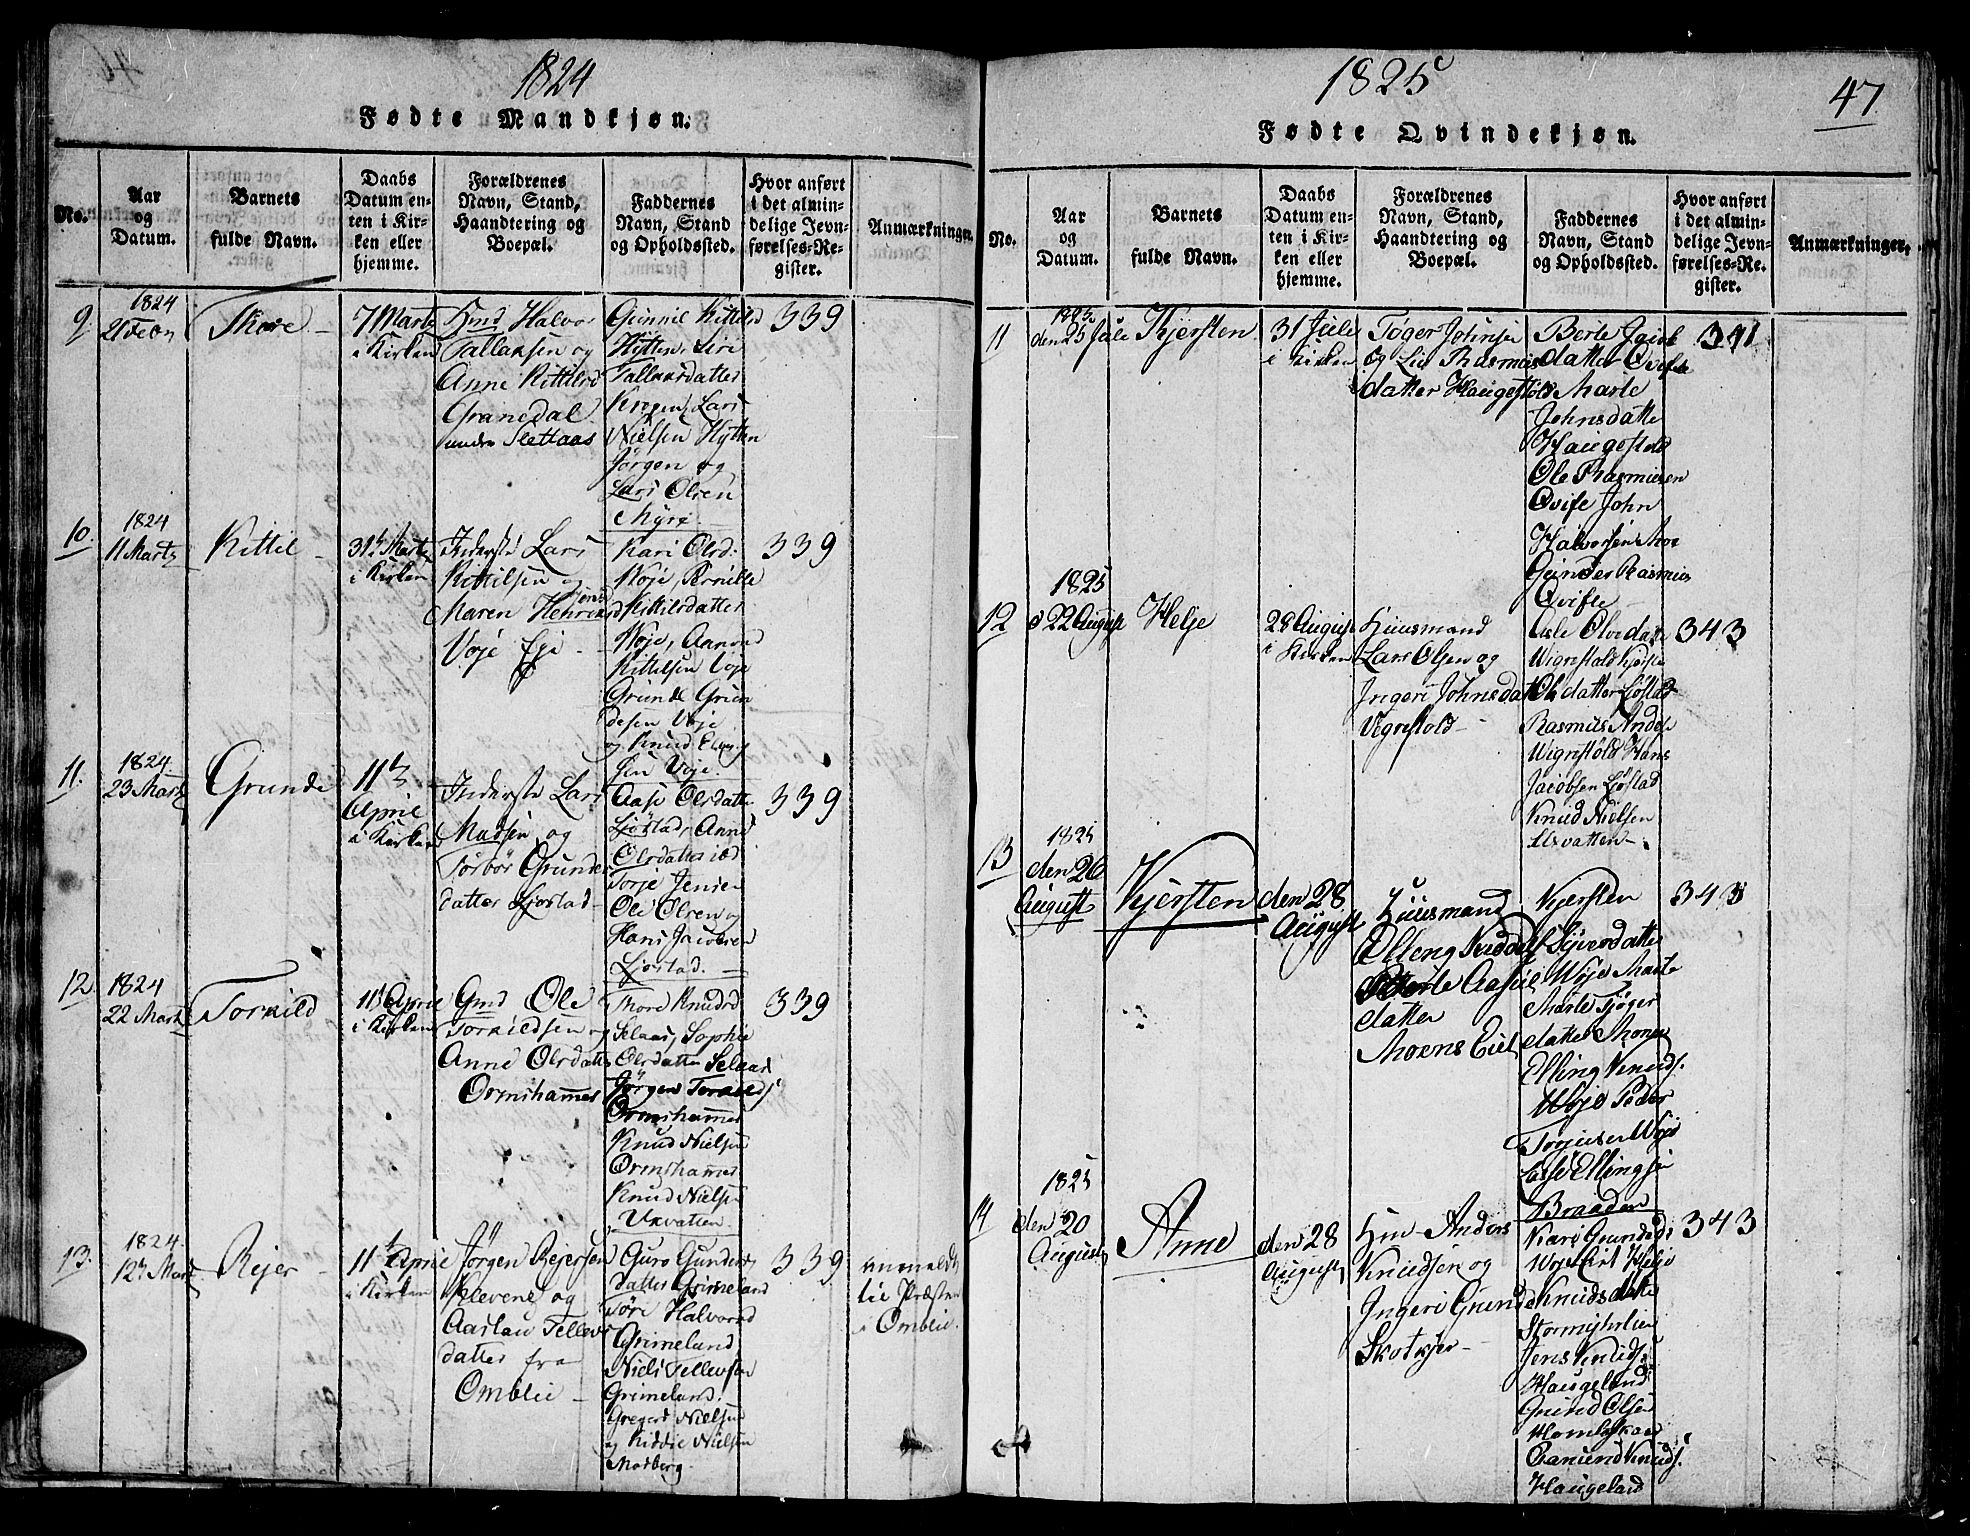 1824
Fødte Mandkjøn.
No.
Aar
og
Datum.
Barnets
fulde Navn.
Daabs
Datum en-
ten i Kir-
ken eller
hjemme.
Forældrenes
Navn, Stand,
Haandtering og
Boepæl.
Faddernes
Navn, Stand
og Opholdssted.
Hvor anført
i det almin-
delige Jevn-
førelses-Re-
gister.
Anmærkninger.
9
1824
21 Febr
Thore
7 Marts
i Kirken
Hmd Halvor
Tallaksen og
Anne Kittilsd
Granedal
under Slettaas
Gunnil Kittilsd
Hytten, Siri
Tallaksdatter
Lars
Nielsen Hytten
Jørgen og
Lars Olsen
Myre
339
10.
1824
11 Marts
Kittil
31 Marts
i Kirken
Inderste Lars
Kittilsen og
Maren
Voje Eje
Kari Olsd:
Woje, Pernille
Kittilsdatter
Woje, Aanond
Kittilsen Voje
Grunde Grun
desen Voje
og Knud Elling
sen Voje.
339
11.
1824
23 Marts
Grunde
11
April
i Kirken
Inderste Lars
Madsen og
Torbor Grunde
datter Ljostad
Aase Olsdatter
Ljostad, Anne
Olsdatter ibd
Torje Jensen
Ole Olsen og
Hans Jacobsen
Ljostad.
339
12
1824
22 Marts
Torkild
11 April
i Kirken
Gmd Ole
Torkildsen og
Anne Olsdatter
Ormshammer
Thore Knudsd
Selaas, Sophie
Olsdatter Selaas
Jørgen Torkilds
Ormshammer
Knud Nielsen
Ormshammer
Knud Nielsen
Uxvatten
339
13.
1824
12 Marts
Rejer
11 April
i Kirken
Jørgen Rejersen
Klevene og
Aaslau Tellevs
datter fra
Omblie
Guro Gunders
datter Grimeland
Tore Halvorsd
Grimeland
Niels Tellevsen
Grimeland.
Gregers Nielsen
og Kiddie Nielsen
Modberg
339
anmeldt
til Præsten
i Omblie.
1825
47
Fødte Qvindekjøn.
No.
Aar
og
Datum.
Barnets
fulde Navn.
Daabs
Datum en-
ten i Kir-
ken eller
hjemme.
Forældrenes
Navn, Stand,
Haandtering og
Boepæl.
Faddernes
Navn, Stand
og Opholdssted.
Hvor anført
i det almin-
delige Jevn-
førelses-Re-
gister.
Anmærkninger.
11
1825
den 25 Jule
Kjersten
31 Jule
i Kirken
Tøger Johnsen
og Liv Rasmus
datter Haugestold
Berte Jacob
datter Qvifte
Marte
Johnsdatte
Haugestold
Ole Rasmusen
Qvifte John
Halvorsen Moe
Gunder Rasmus
Qvifte
341
12
1825
d 22 August
Helje
28 August
i Kirken
Huusmand
Lars Olsen og
Ingeri Johnsdat
Vegrestold
Olsdat
Wignstold Kjerste
Olsdatter Ljøstad
Rasmus Ander
Wignstold Hans
Jacobsen Ljøstad
Knud Nielsen
Uxvatten
343
13
1825
den 26
August
Kjersten
den 28
August
Huusmand
Elleng Knuds
Berte
datter
Moens Eiet
Kjersten
datte
Woje Marte
Marte Tjøger
datter Monen
Elling Knuds.
Woje Peder
Torjusen Woje
Ellingsen
Braaden
343
14
1825
den 20
August
Anne
den 28
August
Hm Anders
Knudsen og
Ingeri Grunde
Skotkjer
Kari Grunds
Woje Helje
Knudsdatte
Stormyhrlien
Jens Knuds
Haugeland
Gunud Olsen
Knuds.
Haugeland
343